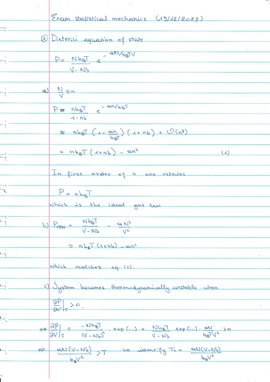 Exam Statistical mechanics (19/12/2023)
① Dieterici equation of state
P = Nk_BT / (V-Nb) e^{-aN/k_BTV}
a) N/V = n
P = nk_BT / (1-nb) e^{-an/k_BT}
≈ nk_BT (1 - an/k_BT) (1+nb) + O(n³)
≈ nk_BT (1+nb) - an² (1)
In first order of n one retains
P = nk_BT
which is the ideal gas law
b) P = Nk_BT / (V-Nb) - aN²/V²
≈ nk_BT (1+nb) - an²
which matches eq. (1).
c) System becomes thermodynamically unstable when
∂P/∂V |_T > 0
⇔ ∂P/∂V |_T = -Nk_BT / (V-Nb)² · exp(...) + Nk_BT / (V-Nb) exp(...) · aN / k_BTV² > 0
⇔ aN(V-Nb) / k_BV² > T